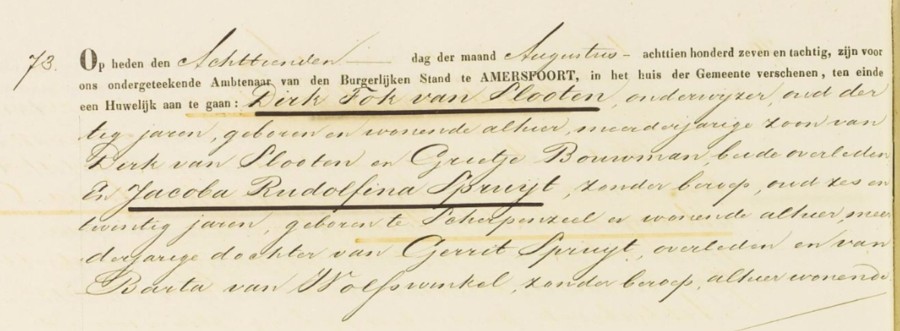 73. Op heden den Achttienden dag der maand Augustus achttien honderd zeven en tachtig, zijn voor
ons ondergeteekende Ambtenaar van den Burgerlijken Stand te AMERSFOORT, in het huis der Gemeente verschenen, ten einde
een Huwelijk aan te gaan: Dirk Fok van Slooten, onderwijzer, oud der
tig jaren, geboren en wonende alhier, meerderjarige zoon van
Dirk van Slooten en Grietje Bouwman beide overleden
En Jacoba Rudolfina Spruyt, zonder beroep, oud zes en
twintig jaren, geboren te Scherpenzeel en wonende alhier meer
derjarige dochter van Gerrit Spruyt, overleden en van
Barta van Wolfswinkel, zonder beroep, alhier wonende